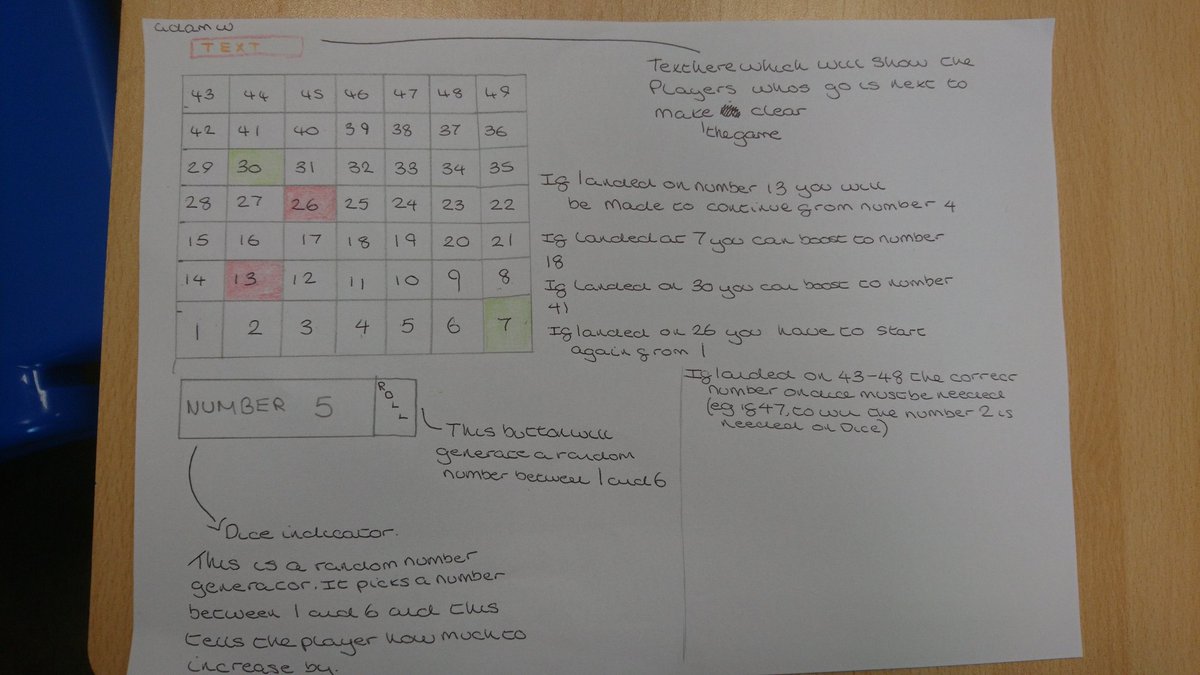 adamw
TEXT
Text here which will show the
Players whos go is next to
make clear
the game
43 44 45 46 47 48 49
42 41 40 39 38 37 36
29 30 31 32 33 34 35
28 27 26 25 24 23 22
15 16 17 18 19 20 21
14 13 12 11 10 9 8
1 2 3 4 5 6 7
If landed on number 13 you will
be made to continue from number 4
If landed at 7 you can boost to number
18
If landed on 30 you can boost to number
41
If landed on 26 you have to start
again from 1
If landed on 43-48 the correct
number on dice must be needed
(eg if 47, to win the number 2 is
needed on Dice)
NUMBER 5
ROLL
This button will
generate a random
number between 1 and 6
Dice indicator.
This is a random number
generator. It picks a number
between 1 and 6 and this
tells the player how much to
increase by.